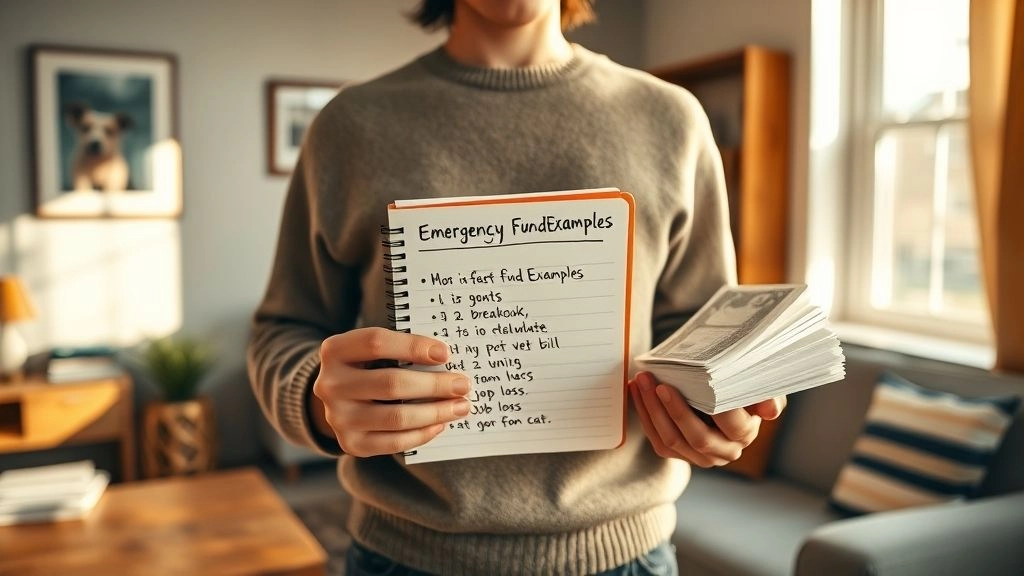 Emergency FundExamples
• Mos is fast fud Examples
• l is gonts
• 2 breakook,
• 3 ts io ctelulate
pet vet bill
2 uniing
fom lues
jop loss.
Job loss
at gor fon cat.